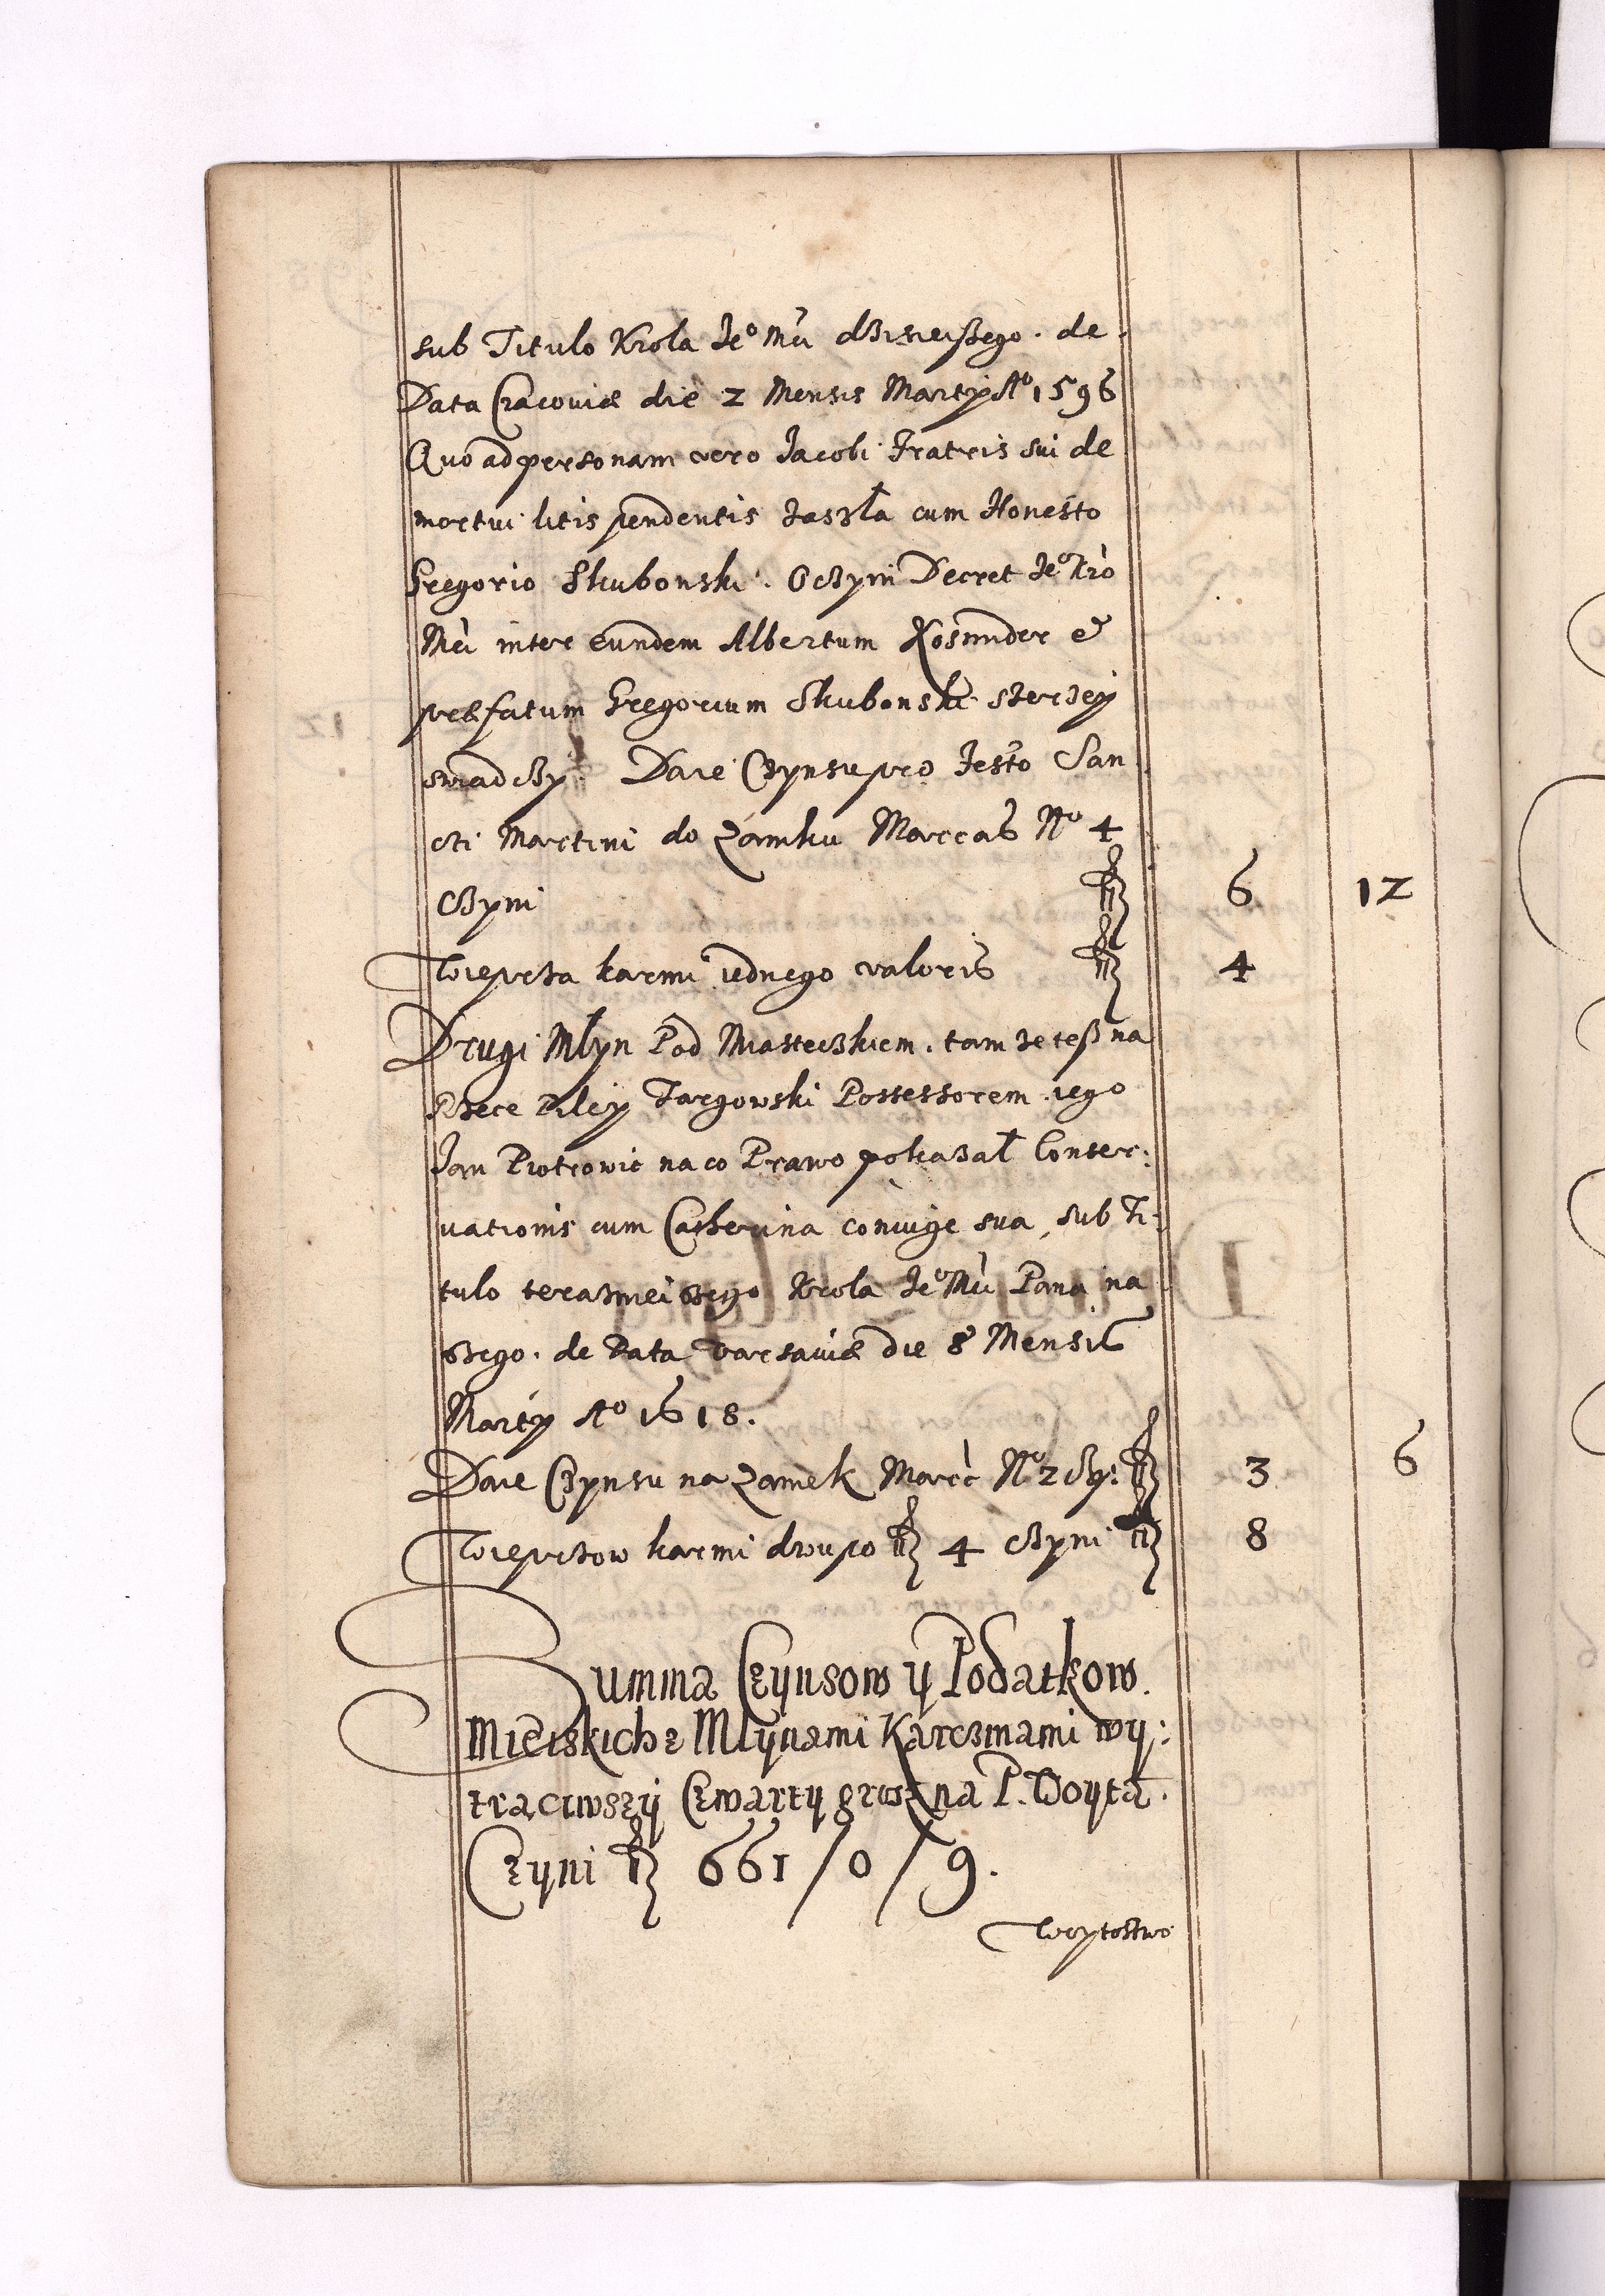 sub Titulo Krola Je⁰ Mci dzisieiszego. de
Data Cracoviæ die 2 Mensis Martij A⁰ 1596
Quo ad personam vero Jacobi Fratris sui de
mortui litis pendentis zaszła cum Honesto
Gregorio Skubonski. O czym Decret Je⁰ Kro
Mci inter eundem Albertum Kosmider et
præfatum Gregorium Skubonski szerzey
swiadczy. Daie Czynsu pro Festo San
cti Martini do Zamku Marcas N⁰ 4
czyni fl 6 12
Wieprza karmi iednego valoris fl 4
Drugi Młyn Pod Miasteczkiem. tamze tesz na
Rzece Pilcy Targowski Possessorem iego
Jan Piotrowic na co Prawo pokazał Conser:
uationis cum Catherina coniuge sua, sub Ti:
tulo terasnieiszego Krola Je⁰ Mci Pana na
szego. de Data Varsaviæ die 8 Mensis
Martij A⁰ 1618.
Daie Czynsu na Zamek Marc N⁰ 2 czy: fl 3 6
Wieprzow karmi dwu po fl 4 czyni fl 8
Summa Czynsow y Podatkow
Mieiskich z Młynami Karczmami wy:
traciwszy Czwarty grosz na P. Woyta.
Czyni fl 661/0/9.
Woytostwo